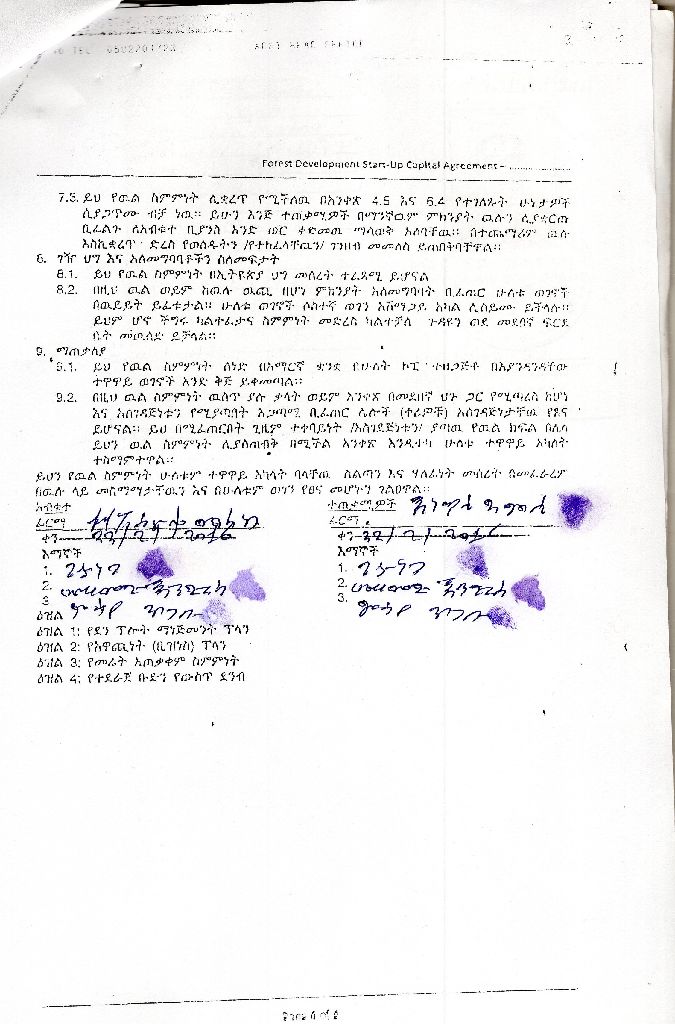 TEL
Forest Development Start-Up Capital Agreement – ..............
7.5. ይህ የዉል ስምምነት ሊቋረጥ የሚችለዉ በአንቀጽ 4.5 እና 6.4 የተገለጹት ሁኔታዎች
ሲያጋጥሙ ብቻ ነዉ። ይሁን እንጅ ተጠቃሚዎች በማንኛዉም ምክንያት ዉሉን ሊያቋርጡ
ቢፈልጉ ለአብቁተ ቢያንስ አንድ ወር ቀድመዉ ማሳወቅ አለባቸዉ። በተጨማሪም ዉሉ
እስኪቋረጥ ድረስ የወሰዱትን /የተከፈላቸዉን/ ገንዘብ መመለስ ይጠበቅባቸዋል።
8. ገዥ ህግ እና አለመግባባቶችን ስለመፍታት
8.1. ይህ የዉል ስምምነት በኢትዮጵያ ህግ መሰረት ተፈጻሚ ይሆናል
8.2. በዚህ ዉል ወይም ከዉሉ ዉጪ በሆነ ምክንያት አለመግባባት ቢፈጠር ሁለቱ ወገኖች
በዉይይት ይፈቱታል። ሁለቱ ወገኖች ሶስተኛ ወገን አሸማጋይ አካል ሊሰይሙ ይችላሉ።
ይህም ሆኖ ችግሩ ካልተፈታና ስምምነት መድረስ ካልተቻለ ጉዳዩን ወደ መደበኛ ፍርድ
ቤት መዉሰድ ይቻላል።
9. ማጠቃለያ
9.1. ይህ የዉል ስምምነት ሰነድ በአማርኛ ቋንቋ የሁለት ኮፒ ተዘጋጅቶ በእያንዳንዳቸው
ተዋዋይ ወገኖች አንድ ቅጅ ይቀመጣል።
9.2. በዚህ ዉል ስምምነት ዉስጥ ያሉ ቃላት ወይም አንቀጽ በመደበኛ ህጉ ጋር የሚጣረስ ከሆነ
እና አስገዳጅነቱን የሚያጣበት አጋጣሚ ቢፈጠር ሌሎች (ቀሪዎቹ) አስገዳጅነታቸዉ የጸና
ይሆናል። ይህ በሚፈጠርበት ጊዜም ተቀባይነት /አስገዳጅነቱን/ ያጣዉ የዉል ክፍል በሌላ
ይህን ዉል ስምምነት ሊያስጠብቅ በሚችል አንቀጽ እንዲተካ ሁለቱ ተዋዋይ አካላት
ተስማምተዋል።
ይህን የዉል ስምምነት ሁለቱም ተዋዋይ አካላት ባላቸዉ ስልጣን እና ሃላፊነት መሰረት በመፈራረም
በዉሉ ላይ መስማማታቸዉን እና በሁለቱም ወገን የፀና መሆኑን ገልፀዋል።
አብቁተ
ፊርማ
ቀን 22/2/2016
እማኞች
1.
2.
3
ተጠቃሚዎች
ፊርማ
ቀን 22/2/2016
እማኞች
1.
2.
3.
ዕዝል 1: የደን ፕሎት ማኔጅመንት ፕላን
ዕዝል 2: የአዋጪነት (ቢዝነስ) ፕላን
ዕዝል 3: የመሬት አጠቃቀም ስምምነት
ዕዝል 4: የተደራጀ ቡድን የውስጥ ደንብ
Page 6 of 6